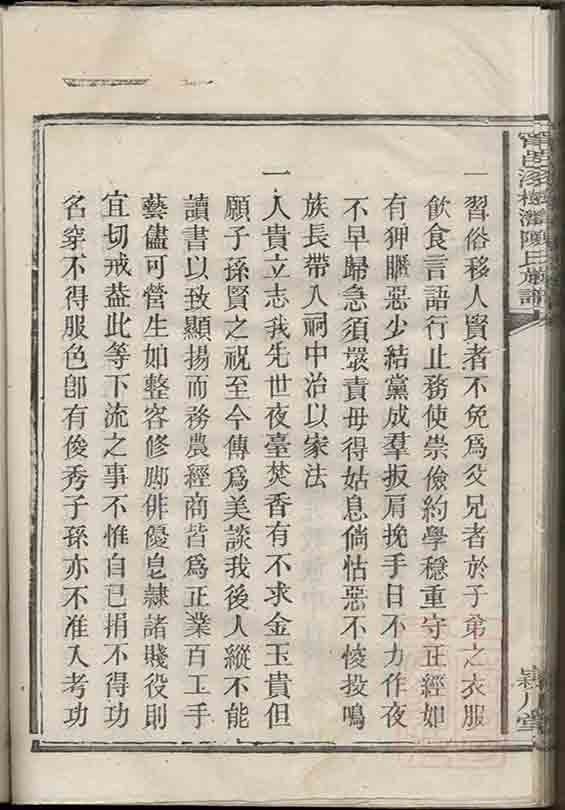 一習俗移人賢者不免爲父兄者於子弟之衣服
飲食言語行止務使崇儉約學穩重守正經如
有狎瞘惡少結黨成羣扳肩挽手日不力作夜
不早歸急須嚴責毋得姑息倘怙惡不悛投鳴
族長帶入祠中治以家法
一人貴立志我先世夜臺焚香有不求金玉貴但
願子孫賢之祝至今傳爲美談我後人縱不能
讀書以致顯揚而務農經商皆爲正業百工手
藝儘可營生如整容修脚俳優皂隷諸賤役則
宜切戒葢此等下流之事不惟自已捐不得功
名穿不得服色卽有俊秀子孫亦不准入考功
陳氏族譜
潁川堂